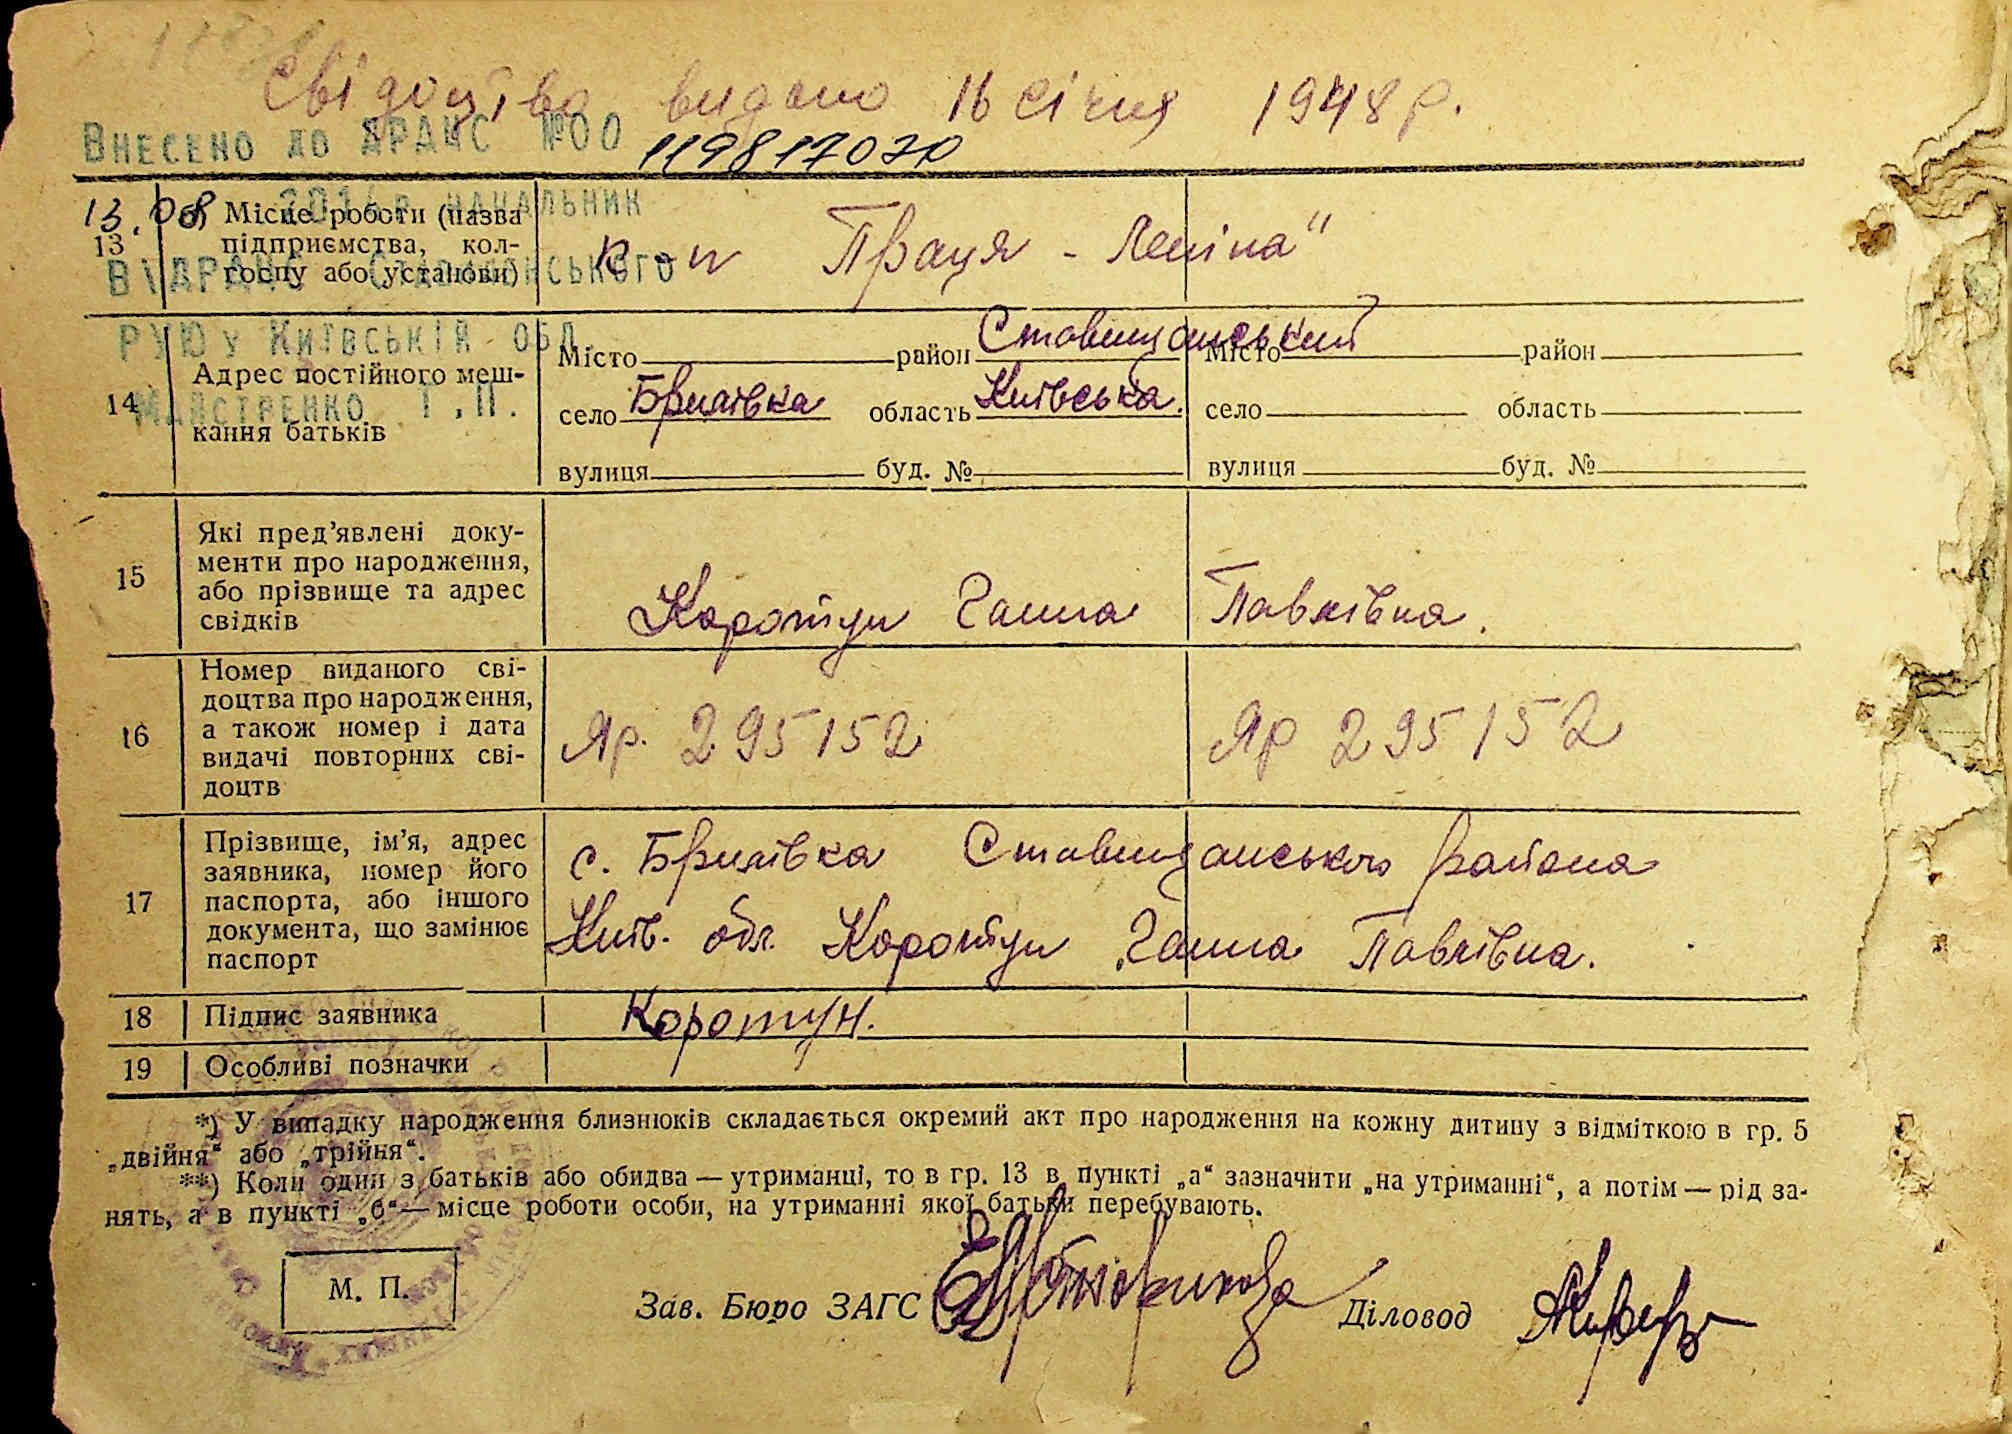 Свідоцтво видано 16 січня 1948 р.
Внесено до ДРАЦС №00 119817070
13.08 2014 р. начальник
ВДРАЦС Ставищенського
РУЮ у Київській обл.
Майстренко Т.П.
13 Місце роботи (назва
підприємства, кол-
госпу або установи)
к-п Праця - Леніна"
14 Адрес постійного меш-
кання батьків
Місто район Ставищанський
село Брилівка область Київська.
вулиця буд. №
Місто район
село область
вулиця буд. №
15 Які пред’явлені доку-
менти про народження,
або прізвище та адрес
свідків
Коротун Ганна Павлівна.
16 Номер виданого сві-
доцтва про народження,
а також номер і дата
видачі повторних сві-
доцтв
Яр. 295152
Яр 295152
17 Прізвище, ім’я, адрес
заявника, номер його
паспорта, або іншого
документа, що замінює
паспорт
с. Брилівка Ставищанського района
Київ. обл. Коротун Ганна Павлівна.
18 Підпис заявника Коротун.
19 Особливі позначки
*) У випадку народження близнюків складається окремий акт про народження на кожну дитину з відміткою в гр. 5
„двійня“ або „трійня“.
**) Коли один з батьків або обидва — утриманці, то в гр. 13 в пункті „а“ зазначити „на утриманні“, а потім — рід за-
нять, а в пункті „б“ — місце роботи особи, на утриманні якої батьки перебувають.
М. П.
Зав. Бюро ЗАГС
Діловод